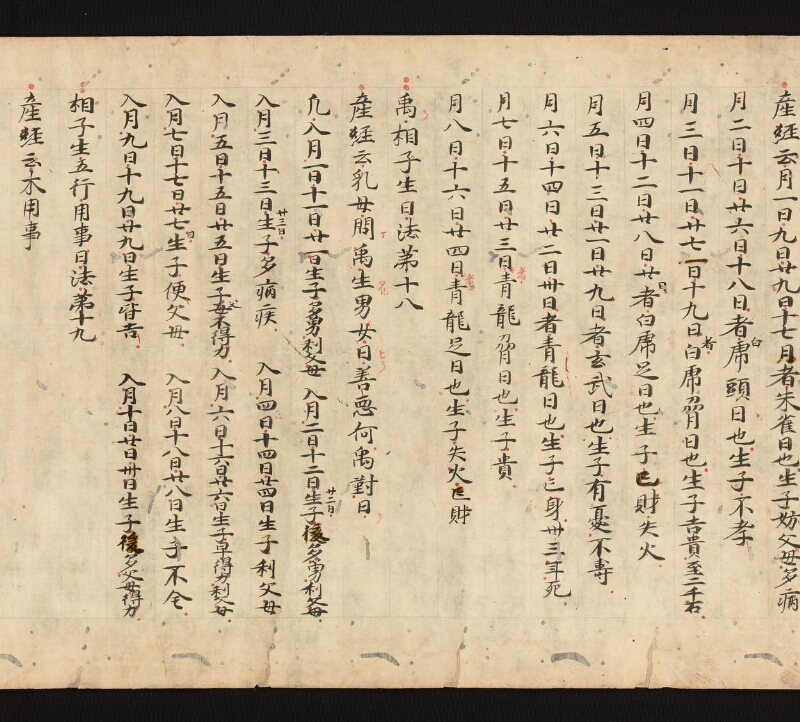 産経云月一日九日廿九日十七月者朱雀日也生子妨父母多病
月二日十日廿六日十八日者白席頭日也生子不孝
月三日十一日廿七一日十九日者白席脅日也生子吉貴至二千石
月四日十二日廿八日廿日者白席足日也生子亡財失火
月五日十三日廿一日廿九日者玄武日也生子有憂不壽
月六日十四日廿二日卅日者青龍日也生子亡身卅三年死
月七日十五日廿三日者青龍脅日也生子貴
月八日十六日廿四日者青龍足日也生子失火亡財
禹相子生日法第十八
産経云乳母問禹生男女日善悪何禹對日
凡入月一日十一日廿一日生子多勇利父母 入月二日十二日廿二日生子後多勇利父母
入月三日十三日廿三日生子多病疾 入月四日十四日廿四日生子利父母
入月五日十五日廿五日生子父母不得力 入月六日十六日廿六日生子早得力利父母
入月七日十七日廿七日生子便父母 入月八日十八日廿八日生子不全
入月九日十九日廿九日生子吉 入月十日廿日卅日生子後多父母得力
相子生五行用事日法第十九
産経云木用事